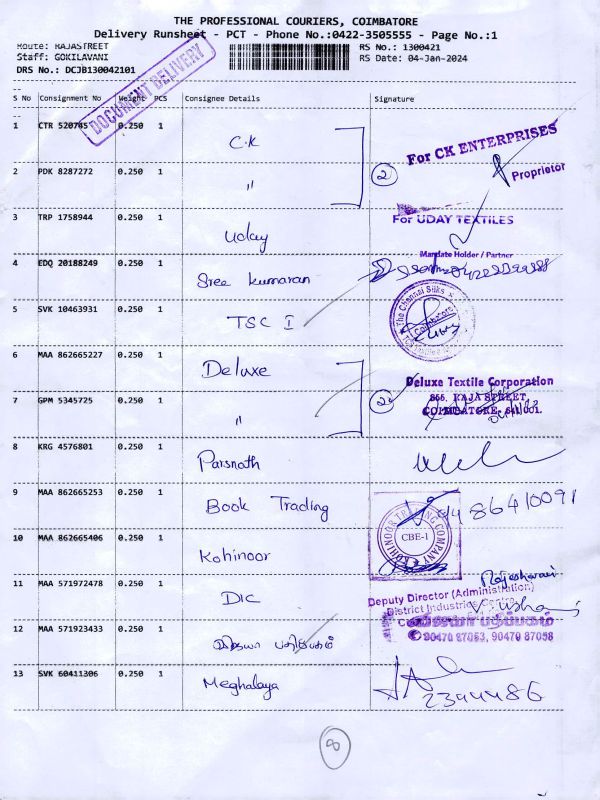 THE PROFESSIONAL COURIERS, COIMBATORE
Delivery Runsheet - PCT - Phone No.:0422-3505555 - Page No.:1
Route: RAJASTREET RS No.: 1300421
Staff: GOKILAVANI RS Date: 04-Jan-2024
DRS No.: DCJB130042101
DOCUMENT DELIVERY
S No Consignment No Weight PCS Consignee Details Signature
1 CTR 520745 0.250 1 C.K For CK ENTERPRISES
2 PDK 8287272 0.250 1 " 2 Proprietor
3 TRP 1758944 0.250 1 Uday For UDAY TEXTILES
Mandate Holder / Partner
4 EDQ 20188249 0.250 1 Sree Kumaran
5 SVK 10463931 0.250 1 TSC I The Chennai Silks Coimbatore
6 MAA 862665227 0.250 1 Deluxe Deluxe Textile Corporation
7 GPM 5345725 0.250 1 " 2 RAJA STREET,
COIMBATORE- 641 001.
8 KRG 4576801 0.250 1 Parsnath
9 MAA 862665253 0.250 1 Book Trading 9486410091
10 MAA 862665406 0.250 1 Kohinoor KOHINOOR TRADING COMPANY CBE-1
11 MAA 571972478 0.250 1 DIC Rajeshwari
Deputy Director (Administration)
District Industries Centre
12 MAA 571923433 0.250 1 விஜயா பதிப்பகம் விஜயா பதிப்பகம்
90470 87053, 90470 87058
13 SVK 60411306 0.250 1 Meghalaya 2394486
8